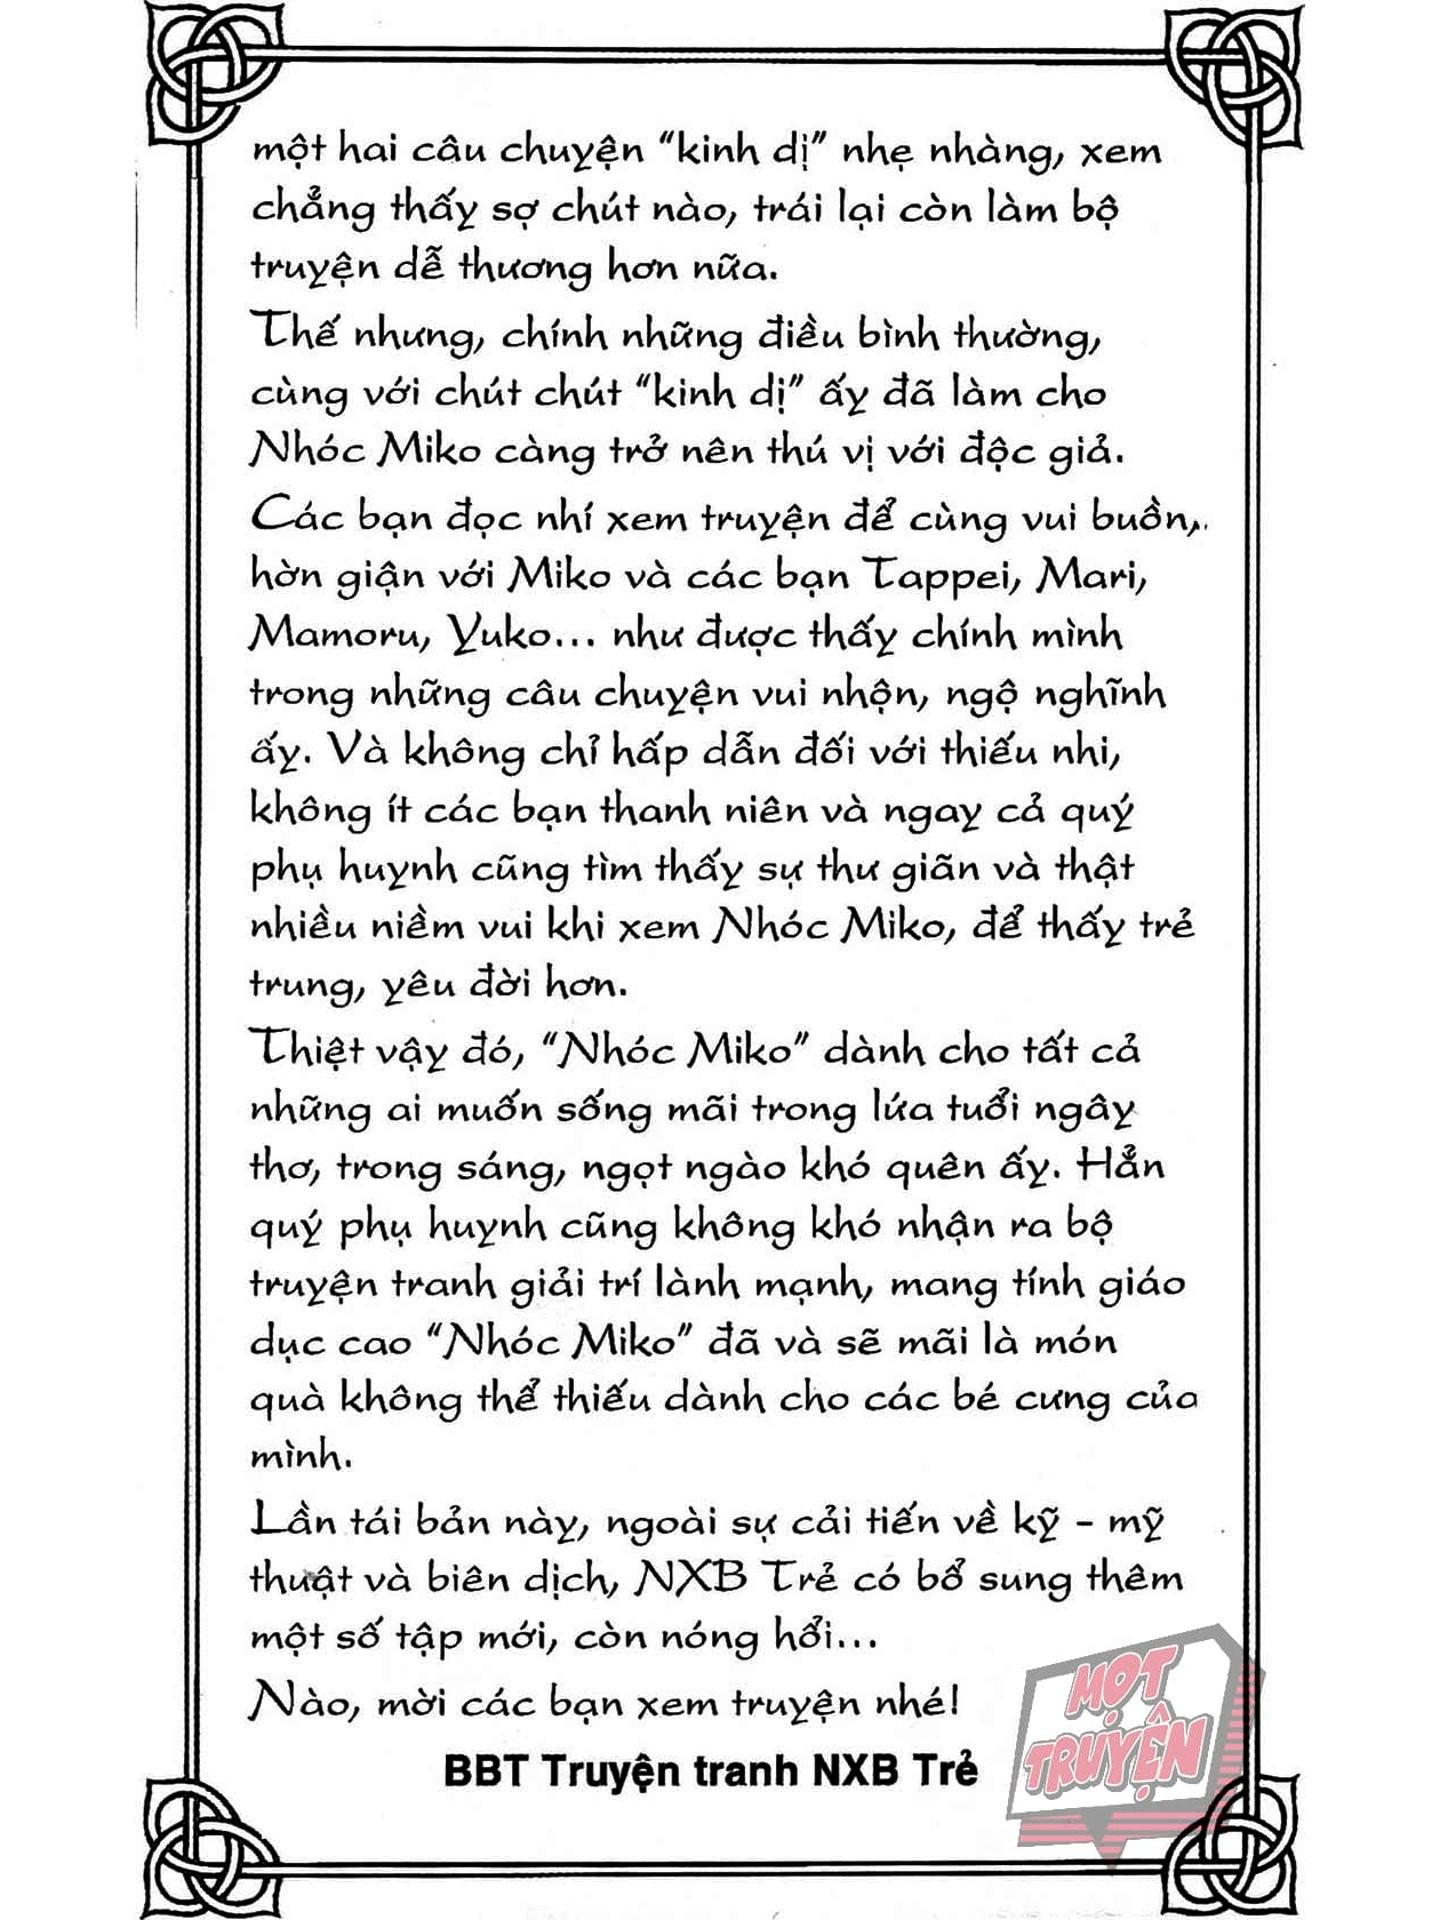 một hai câu chuyện “kinh dị” nhẹ nhàng, xem
chẳng thấy sợ chút nào, trái lại còn làm bộ
truyện dễ thương hơn nữa.
Thế nhưng, chính những điều bình thường,
cùng với chút chút “kinh dị” ấy đã làm cho
Nhóc Miko càng trở nên thú vị với độc giả.
Các bạn đọc nhí xem truyện để cùng vui buồn,
hờn giận với Miko và các bạn Tappei, Mari,
Mamoru, Yuko... như được thấy chính mình
trong những câu chuyện vui nhộn, ngộ nghĩnh
ấy. Và không chỉ hấp dẫn đối với thiếu nhi,
không ít các bạn thanh niên và ngay cả quý
phụ huynh cũng tìm thấy sự thư giãn và thật
nhiều niềm vui khi xem Nhóc Miko, để thấy trẻ
trung, yêu đời hơn.
Thiệt vậy đó, “Nhóc Miko” dành cho tất cả
những ai muốn sống mãi trong lứa tuổi ngây
thơ, trong sáng, ngọt ngào khó quên ấy. Hẳn
quý phụ huynh cũng không khó nhận ra bộ
truyện tranh giải trí lành mạnh, mang tính giáo
dục cao “Nhóc Miko” đã và sẽ mãi là món
quà không thể thiếu dành cho các bé cưng của
mình.
Lần tái bản này, ngoài sự cải tiến về kỹ - mỹ
thuật và biên dịch, NXB Trẻ có bổ sung thêm
một số tập mới, còn nóng hổi...
Nào, mời các bạn xem truyện nhé!
BBT Truyện tranh NXB Trẻ
MỌT
TRUYỆN